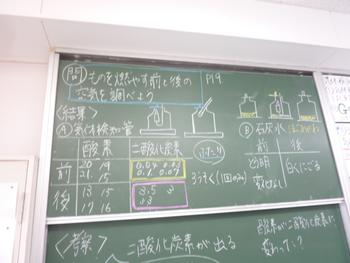 問 ものを燃やす前と後の P19.
空気を調べよう
〈結果〉
Ⓐ 気体検知管
酸素 二酸化炭素
前 20 19
21 15
0.04 0.03
0.1 0.04
後 13 15
17 16
3.5 3
3
Ⓑ 石灰水
前 後
透明 白くにごる
変化なし
ろうそく(1回のみ)
〈考察〉 二酸化炭素が出る
酸素が二酸化炭素に
変わった?